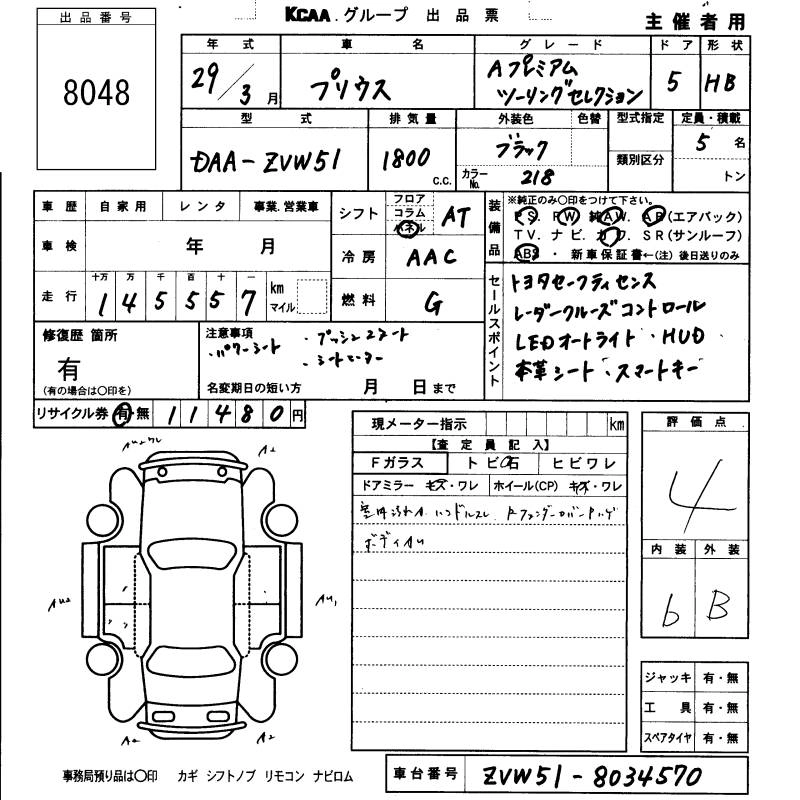 出品番号
8048
KCAA.グループ 出品票
主催者用
年式 車名 グレード ドア 形状
29/3月 プリウス Aプレミアム ツーリングセレクション 5 HB
型式 排気量 外装色 色替 型式指定 定員・積載
DAA-ZVW51 1800 c.c. ブラック 5名
カラーNo. 218 類別区分 トン
車歴 自家用 レンタ 事業.営業車
シフト フロア コラム パネル AT
装備品 ※純正のみ○印をつけて下さい。
P S. P W. 純 A W. A B(エアバック)
TV. ナビ. カワ. SR(サンルーフ)
ABS . 新車保証書←(注)後日送りのみ
車検 年 月
冷房 AAC
走行 十万 万 千 百 十 一 km マイル
1 4 5 5 5 7
燃料 G
セールスポイント
トヨタセーフティセンス
レーダークルーズコントロール
LEDオートライト ・HUD
本革シート ・スマートキー
修復歴 箇所
有
(有の場合は○印を)
注意事項
・パワーシート ・プッシュスタート
・シートヒーター
名変期日の短い方 月 日まで
リサイクル券 有・無 11480円
現メーター指示 km
【査定員記入】
Fガラス トビ石 ヒビワレ
ドアミラー キズ・ワレ ホイール(CP) キズ・ワレ
ハンドルスレ
ボディAU
評価点
4
内装 外装
b B
A2
AU2
AU1
A2
A2
ジャッキ 有・無
工具 有・無
スペアタイヤ 有・無
事務局預り品は○印 カギ シフトノブ リモコン ナビロム
車台番号 ZVW51-8034570